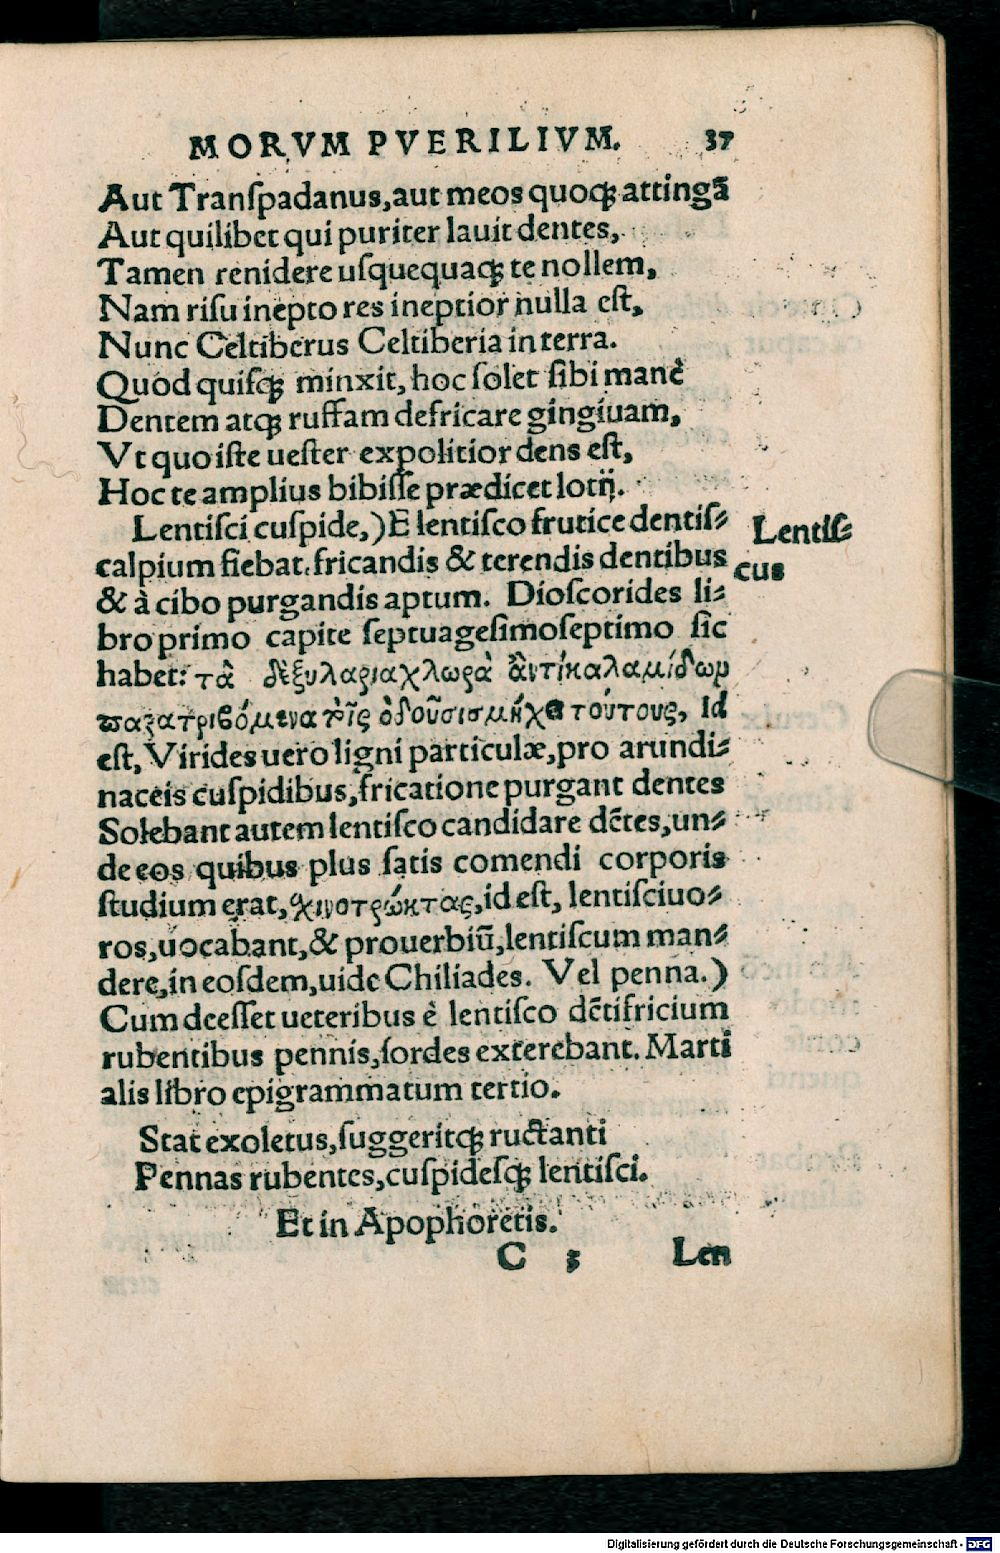 MORVM PVERILIVM. 37
Aut Tranſpadanus,aut meos quoqꝫ attingā
Aut quilibet qui puriter lauit dentes,
Tamen renidere uſquequaqꝫ te nollem,
Nam riſu inepto res ineptior nulla eſt,
Nunc Celtiberus Celtiberia in terra.
Quod quiſqꝫ minxit, hoc ſolet ſibi manè
Dentem atqꝫ ruffam defricare gingiuam,
Vt quo iſte ueſter expolitior dens eſt,
Hoc te amplius bibiſſe prædicet lotij.
Lentiſci cuſpide,) E lentiſco frutice dentiſ⸗
Lentiſ⸗
calpium fiebat, fricandis & terendis dentibus
cus
& à cibo purgandis aptum. Dioſcorides li⸗
bro primo capite ſeptuageſimoſeptimo ſic
habet: τὰ δὲ ξυλαρια χλωρὰ ἀντὶ καλαμίδωρ
παρατριβόμενα τοῖς ὀδοῦσι σμήχει τούτους, Id
eſt, Virides uero ligni particulæ,pro arundi⸗
naceis cuſpidibus,fricatione purgant dentes
Solebant autem lentiſco candidare dētes,un⸗
de eos quibus plus ſatis comendi corporis
ſtudium erat, χινοτρώκτας, id eſt, lentiſciuo⸗
ros,uocabant,& prouerbiū,lentiſcum man⸗
dere,in eoſdem,uide Chiliades. Vel penna.)
Cum deeſſet ueteribus è lentiſco dētifricium
rubentibus pennis,ſordes exterebant. Marti
alis libro epigrammatum tertio.
Stat exoletus,ſuggeritqꝫ ructanti
Pennas rubentes,cuſpideſqꝫ lentiſci.
Et in Apophoretis.
C 3 Len
Digitalisierung gefördert durch die Deutsche Forschungsgemeinschaft - DFG